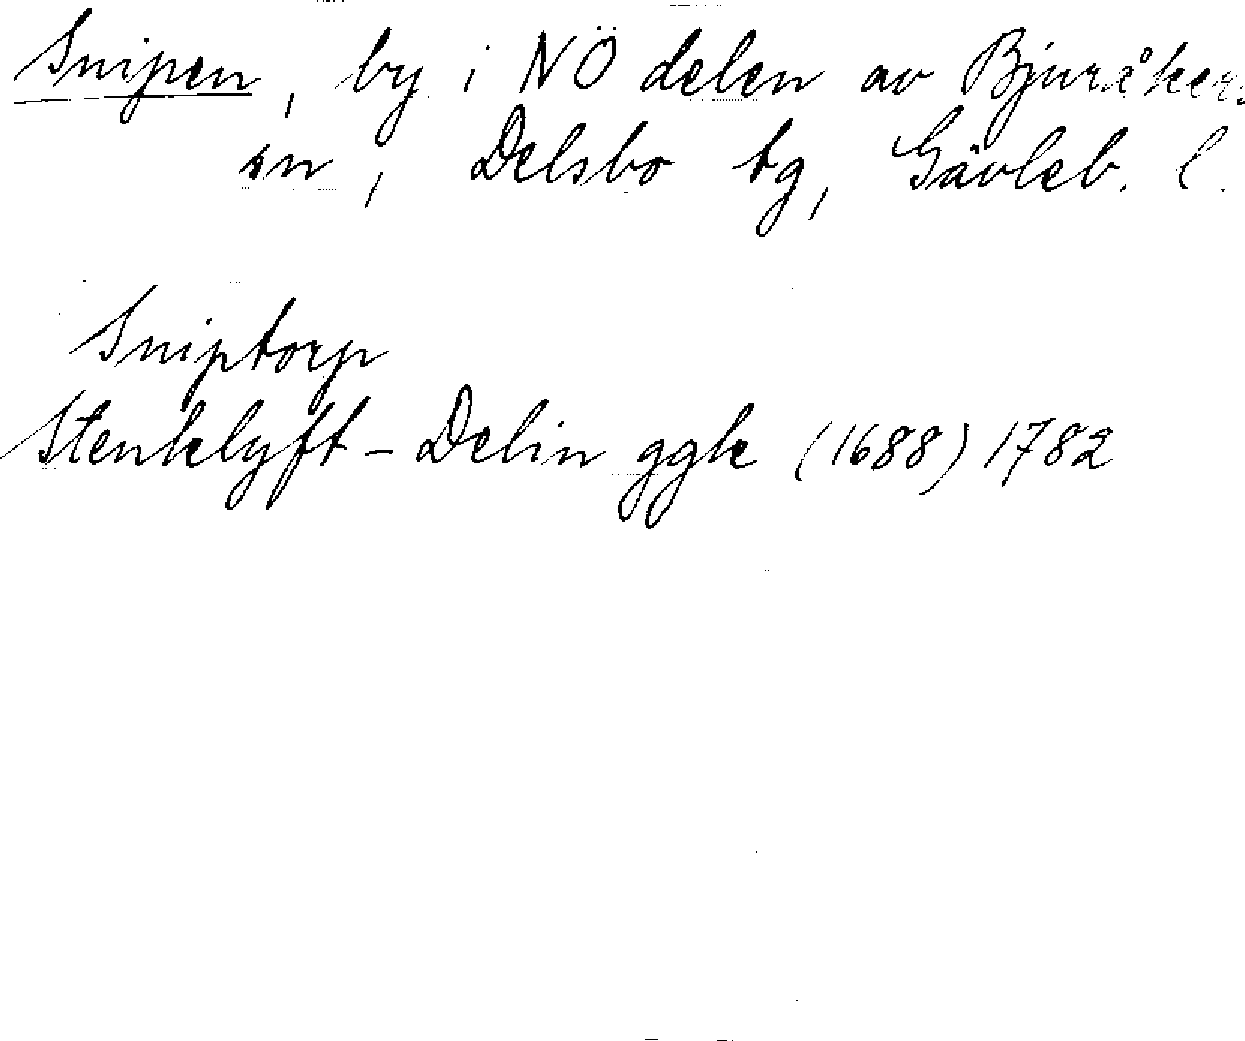 Snipen, by i NÖ delen av Bjuråkers
sn, Delsbo tg, Gävleb. l.
Sniptorp
Stenklyft - Delin ggk (1688) 1782